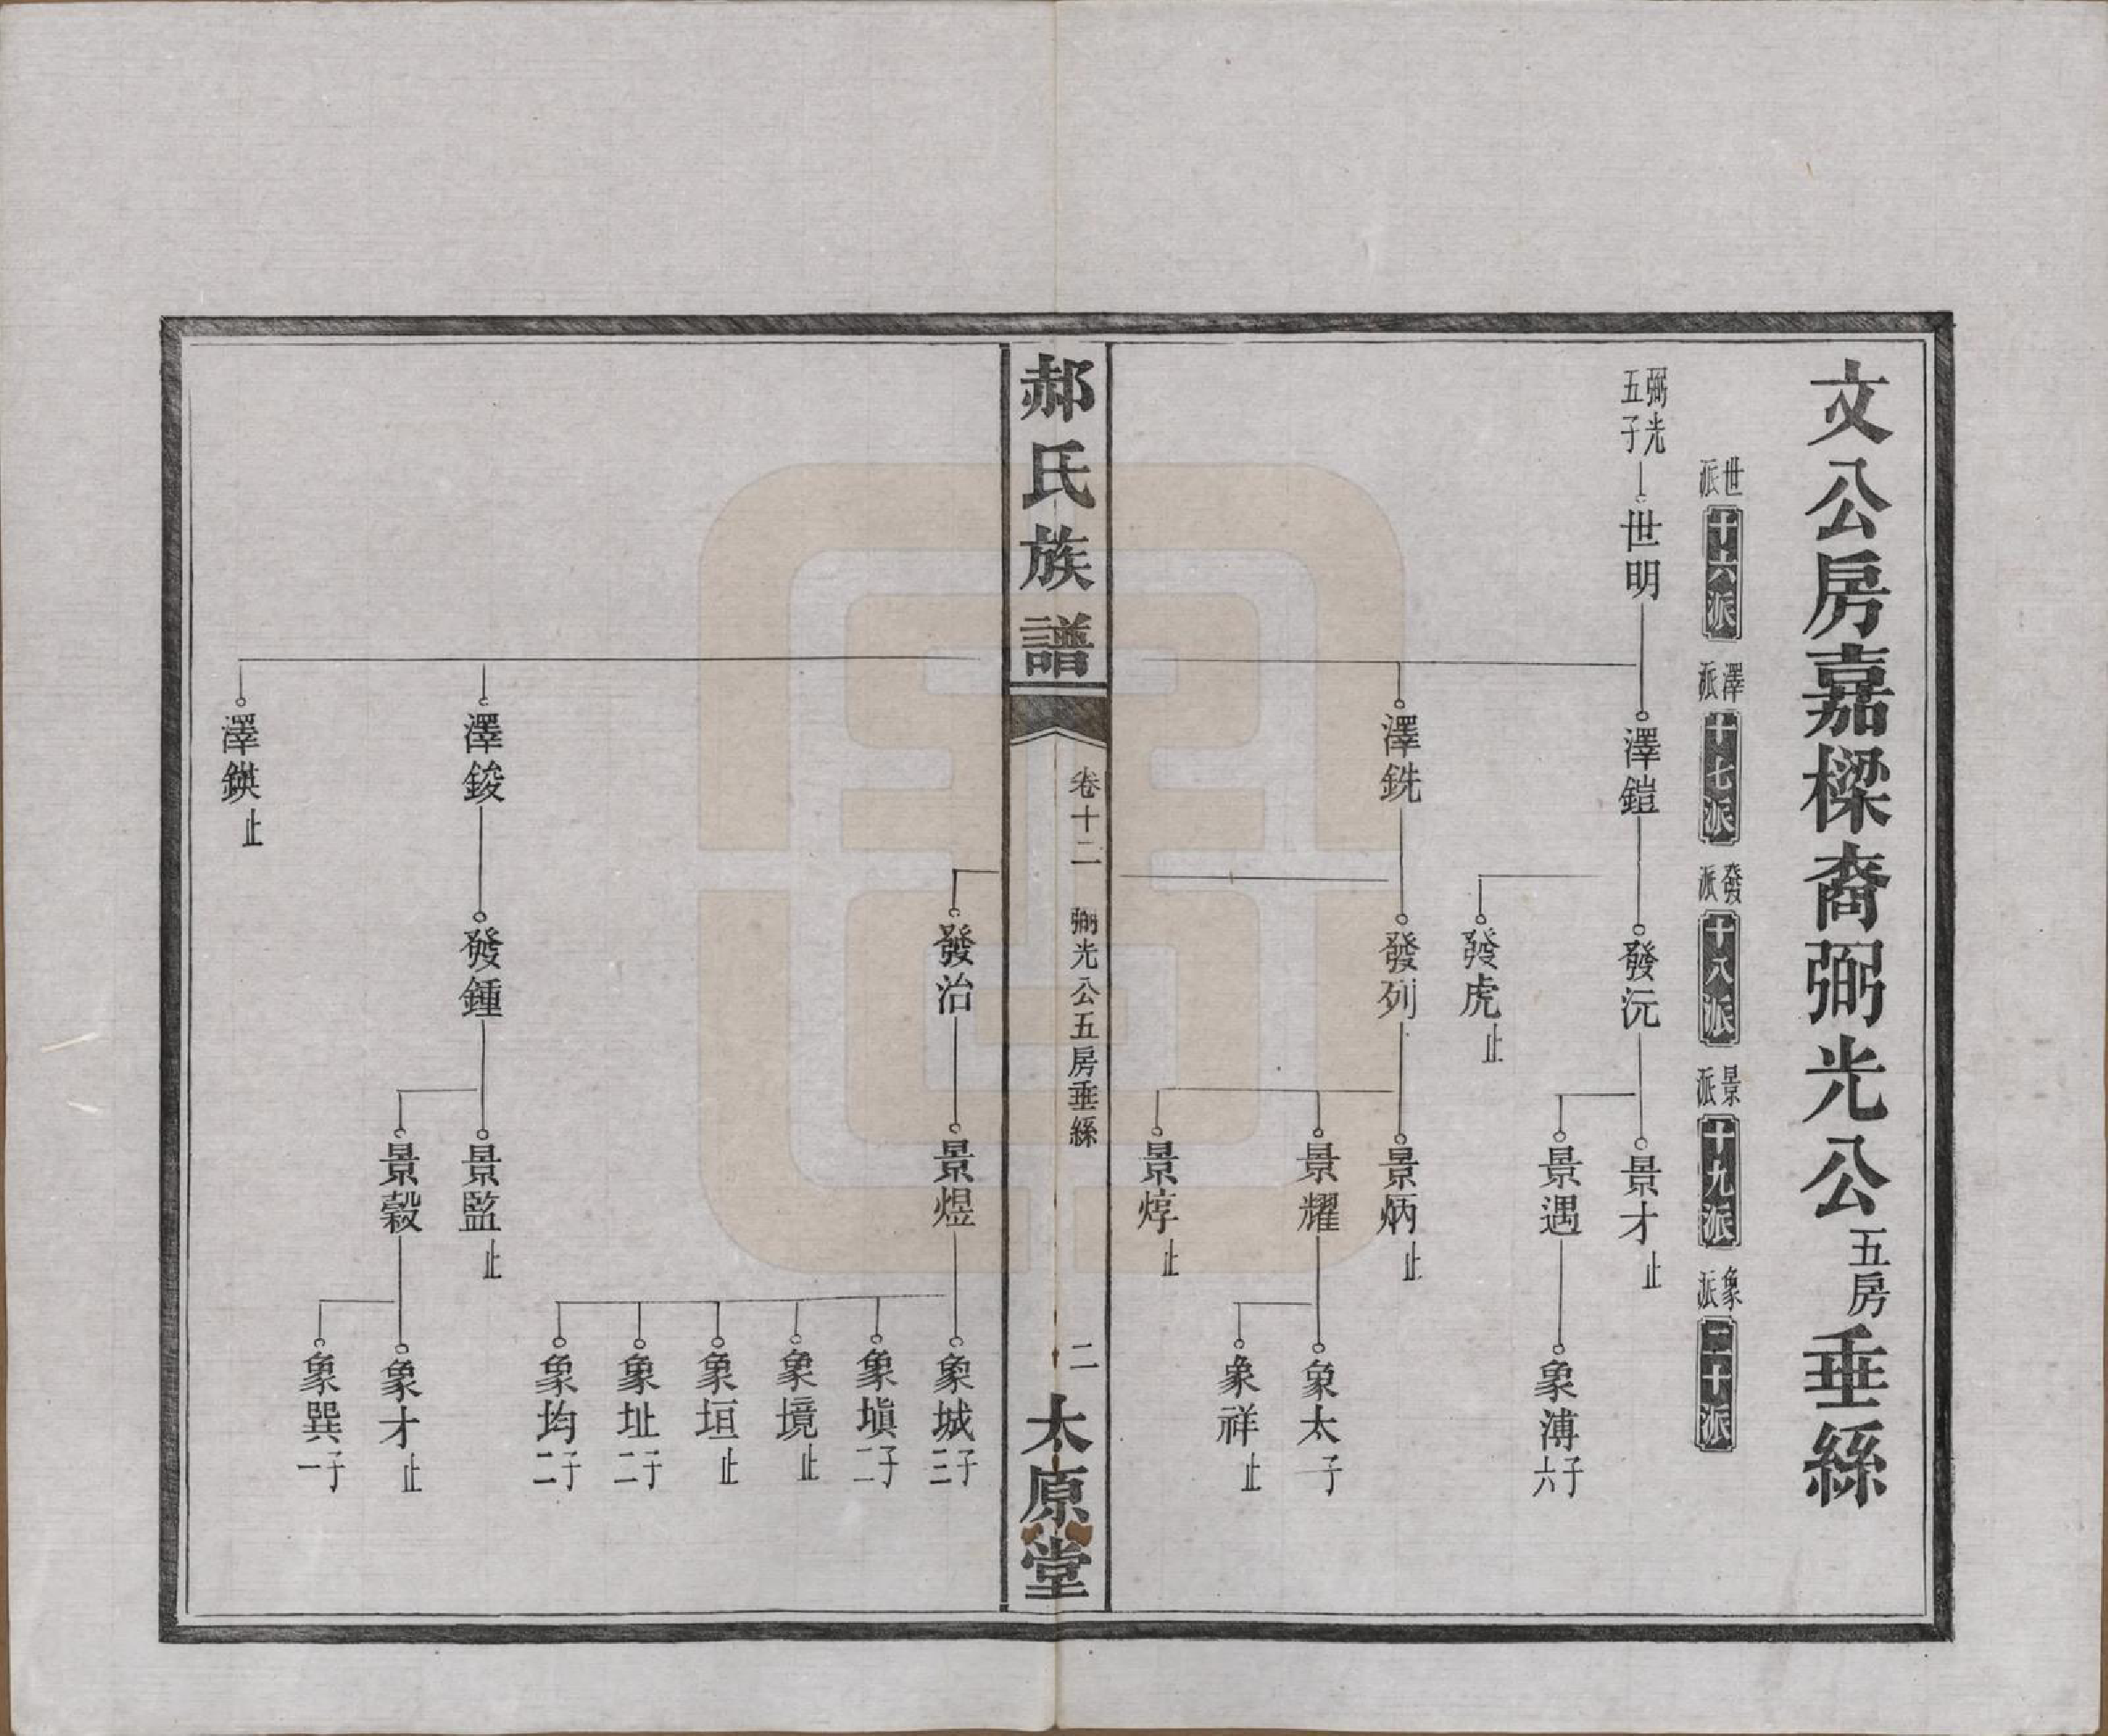 文公房嘉樑裔弼光公五房垂絲
世派
十六派
澤派
十七派
發派
十八派
景派
十九派
象派
二十派
弼光五子
世明
澤鎧
發沅
景才 止
景遇
象溥 子六
發虎 止
澤銑
發列
景炳 止
景耀
象太 子一
象祥 止
景焞 止
郝氏族譜
卷十二
弼光公五房垂絲
二
太原堂
發治
景煜
象城 子三
象塡 子二
象境 止
象垣 止
象址 子二
象均 子二
澤鋑
發鍾
景監 止
景穀
象才 止
象巽 子一
澤鍈 止